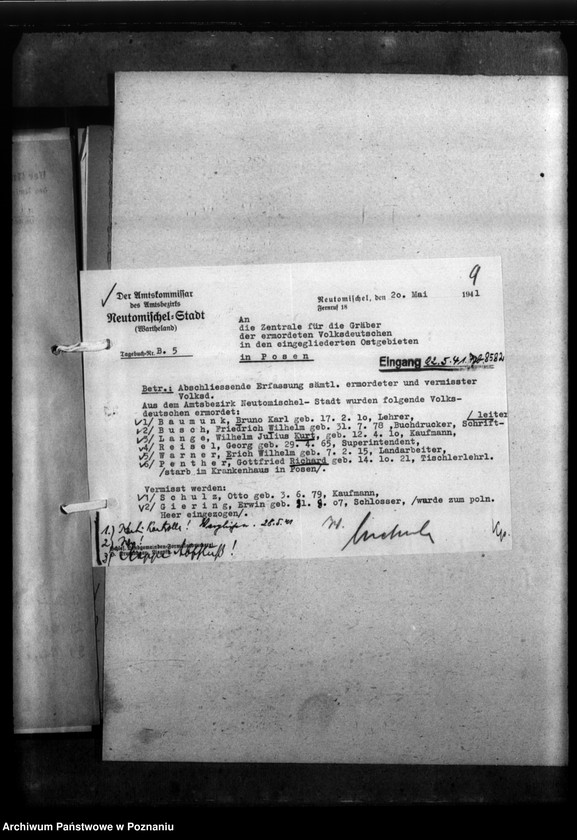 9
Der Amtskommissar
des Amtsbezirks
Neutomischel-Stadt
(Wartheland)
Tagebuch-Nr. B. 5
Neutomischel, den 20. Mai 1941
Fernruf 18
An
die Zentrale für die Gräber
der ermordeten Volksdeutschen
in den eingegliederten Ostgebieten
in Posen
Eingang 22.5.41
Betr.: Abschliessende Erfassung sämtl. ermordeter und vermisster
Volksd.
Aus dem Amtsbezirk Neutomischel- Stadt wurden folgende Volks-
deutschen ermordet:
1/ B a u m u n k, Bruno Karl geb. 17. 2. 10, Lehrer, / leiter
2/ B u s c h, Friedrich Wilhelm geb. 31. 7. 78 ,Buchdrucker, Schrift-
3/ L a n g e, Wilhelm Julius Kurt, geb. 12. 4. 10, Kaufmann,
4/ R e i s e l, Georg geb. 29. 4. 65, Superintendent,
5/ W a r n e r, Erich Wilhelm geb. 7. 2. 15, Landarbeiter,
6/ P e n t h e r, Gottfried Richard geb. 14. 10. 21, Tischlerlehrl.
/starb im Krankenhaus in Posen/.
Vermisst werden:
1/ S c h u l z, Otto geb. 3. 6. 79, Kaufmann,
2/ G i e r i n g, Erwin geb. 07, Schlosser, /wurde zum poln.
Heer eingezogen/.
1.)
28.5.41
2)
3)
Archiwum Państwowe w Poznaniu